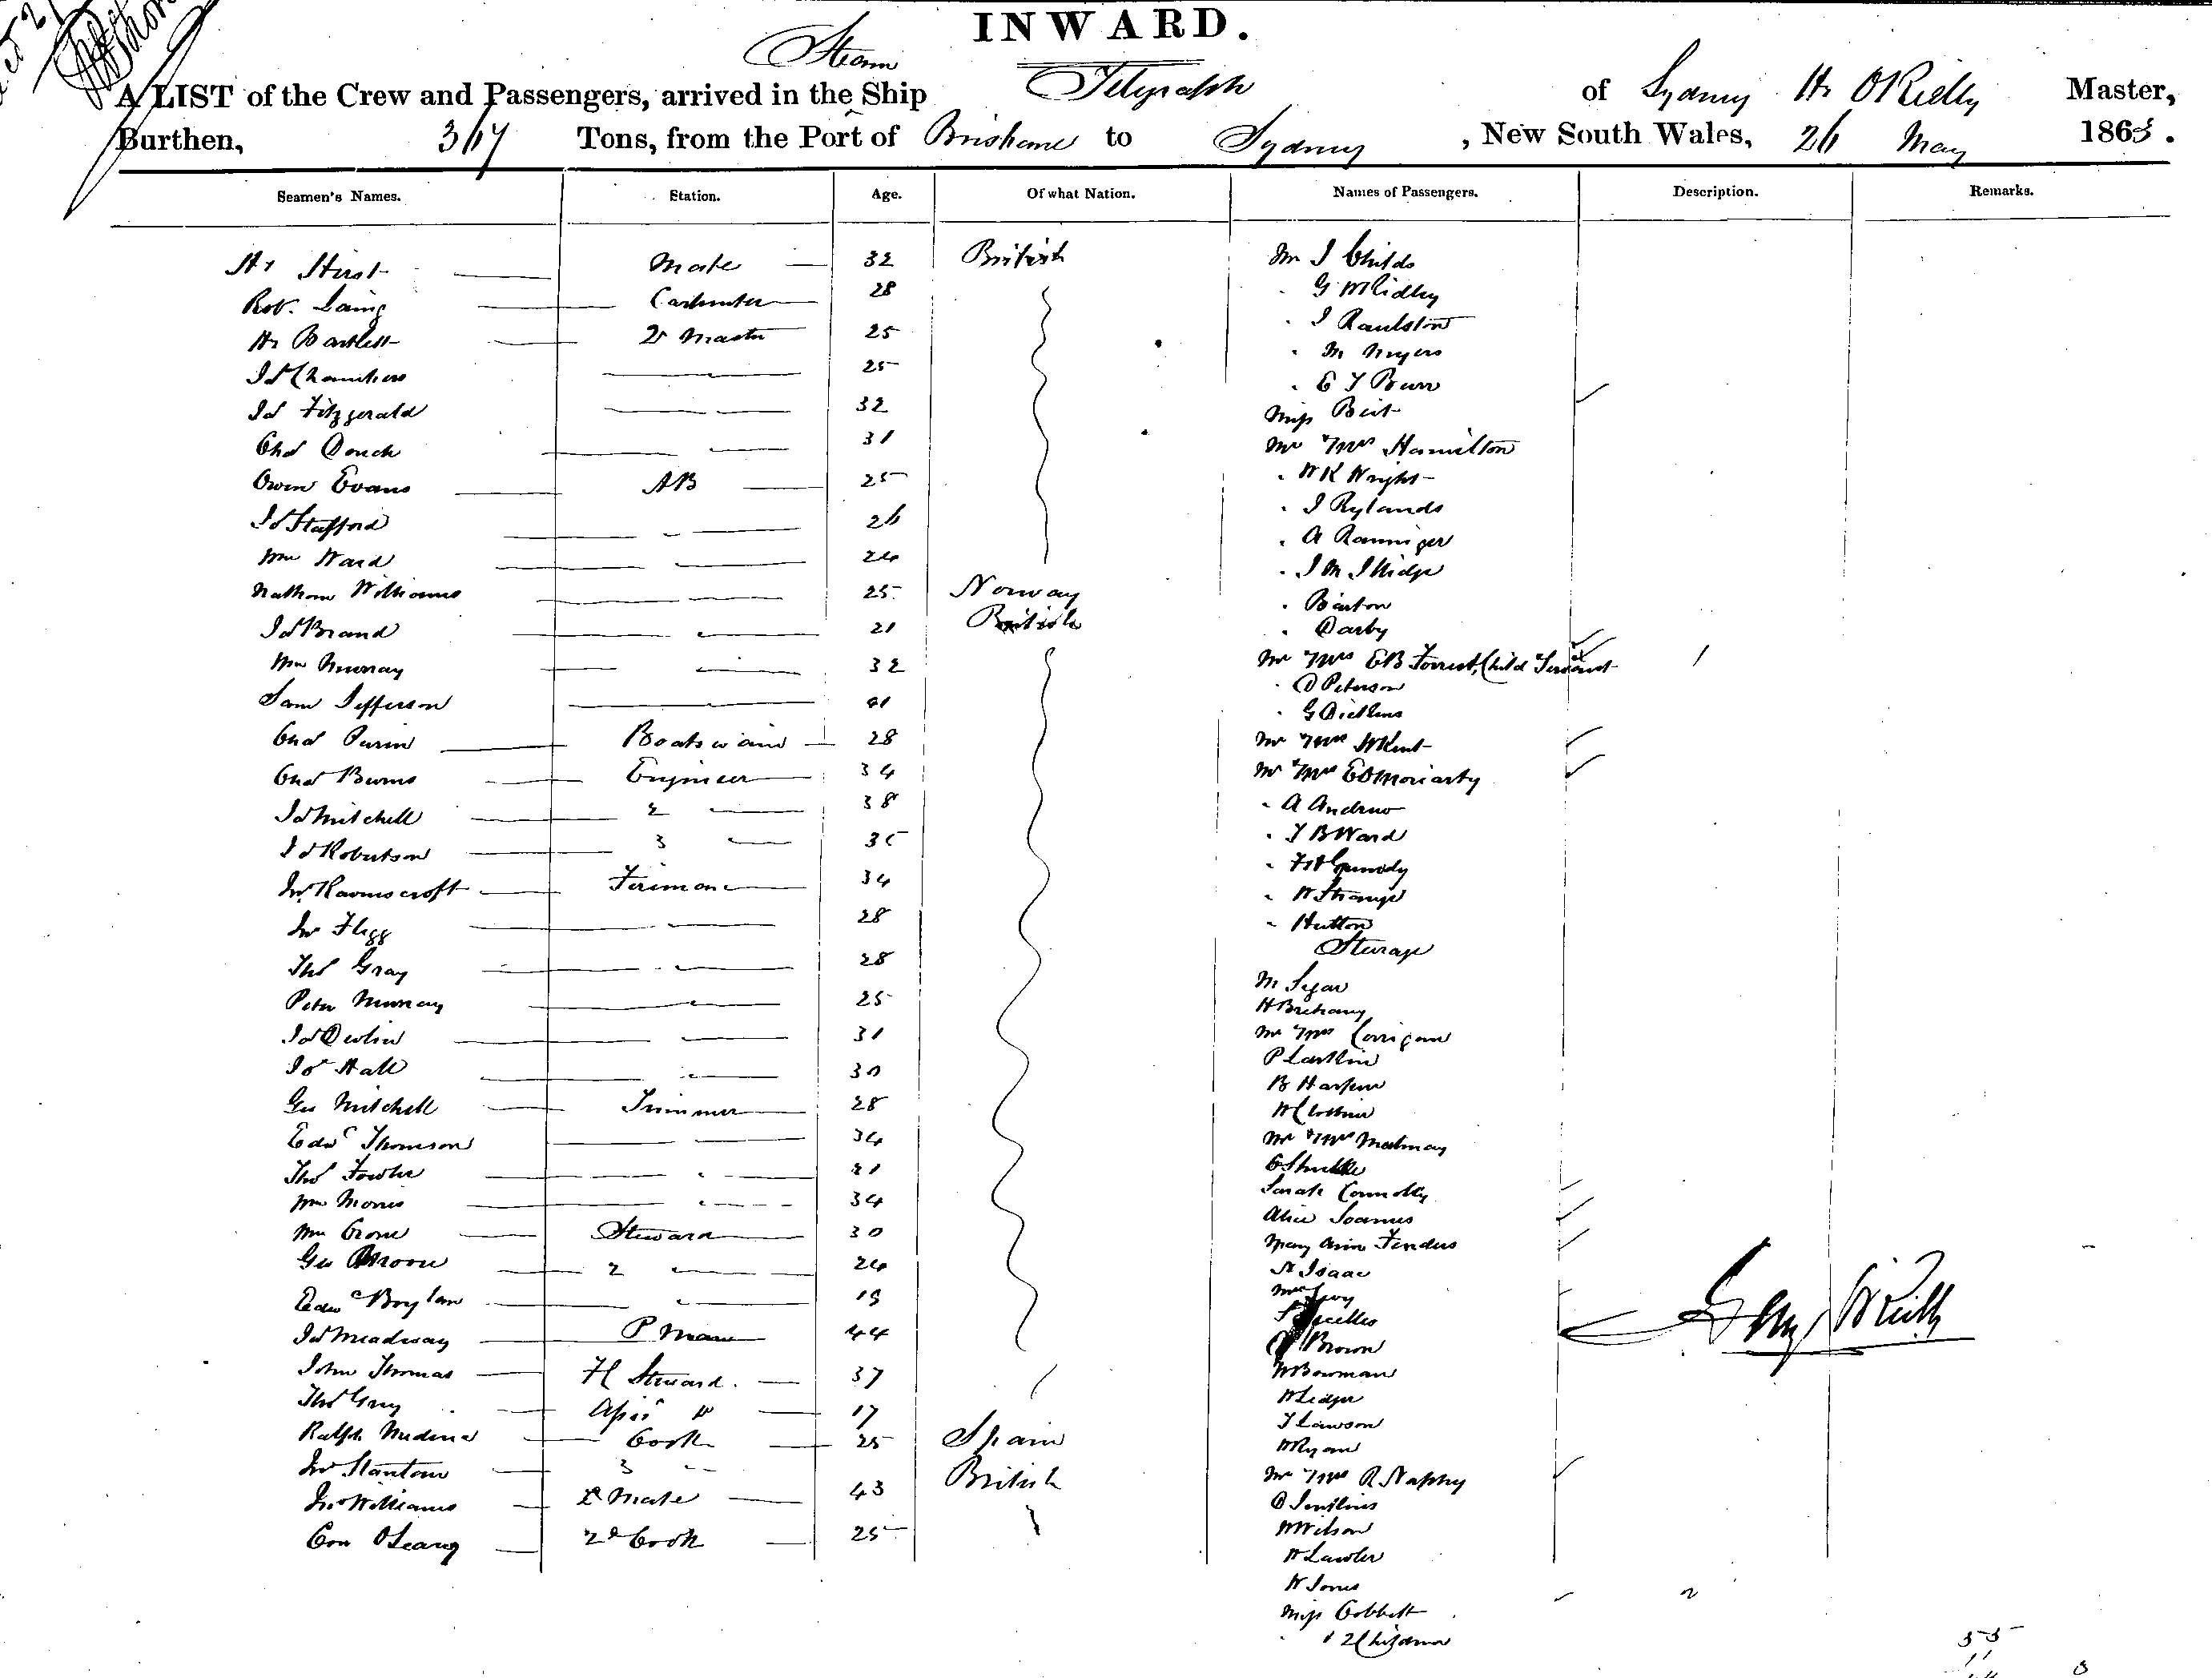 INWARD.
A LIST of the Crew and Passengers, arrived in the Steam Ship Telegraph of Sydney Hy O'Reilly Master,
Burthen, 367 Tons, from the Port of Brisbane to Sydney, New South Wales, 26 May 1863.
Seamen's Names. Station. Age. Of what Nation. Names of Passengers. Description. Remarks.
Hy Hirst Mate 32 British
Robt. Laing Carpenter 28
Hy Bartlett 2r Master 25
Js Chambers 25
Js Fitzgerald 32
Chas Douch 31
Owen Evans AB 25
Js Stafford 26
Wm Ward 24
Nathan Williams 25 Norway
Js Brand 21 British
Wm Murray 32
Sam Jefferson
Chas Boatswain 28
Chas Burns Engineer 34
Js Mitchell 2 38
Js Robertson 3 35
Jno Ravenscroft Fireman 34
Jno Flegg 28
Thos Gray 28
Peter Murray 25
Js Devlin 31
Js Hall 30
Geo Mitchell Trimmer 28
Edwd Thomson 34
Thos Fowler 21
Wm Morris 34
Wm Crone Steward 30
Geo 2 24
Edwd Boylan 19
Js Meadway P Man 44
John Thomas Steward. 37
Thos Gray 17
Ralph Medina Cook 25 Spain
Jno Stanton 3 British
Jno Williams Mate 43
Con O'Leary 2d Cook 25
Mr J Childs
G W Ridley
J Raulston
M Myers
E T Burr
Miss Beit
Mr & Mrs Hamilton
W K Wright
J Rylands
A Ranniger
J M Illidge
Barton
Darby
Mr & Mrs E B Forrest, Child & Servant 1
D Peterson
G Dickens
Mr & Mrs W Kent
Mr & Mrs E O Moriarty
A Andrew
T B Ward
W Strange
Hutton
Steerage
M Segar
Mr & Mrs Corrigan
P Larkin
B Harpur
Mr & Mrs
Sarah Connolly
Alice
Mary Ann Fenders
N Isaac
Mrs Levy
Brown
W Bowman
W Ledger
T Lawson
W Ryan
Mr & Mrs R Naphy
D Jenkins
W Wilson
W Lawler
W Jones
Miss Cobbett 2
& 2 Children
Henry O'Reilly
55
11